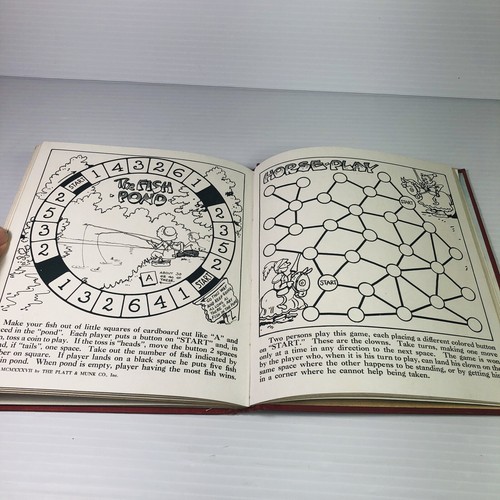 The FISH
POND
START
1 4 3 2 6 1
2
2
5
3
3
5
2
2
1 3 2 6 4 1
START
A
ABOUT 30
OR 40 OF
THESE
Make your fish out of little squares of cardboard cut like "A" and
eed in the "pond". Each player puts a button on "START" and, in
n, toss a coin to play. If the toss is "heads", move the button 2 spaces
nd, if "tails", one space. Take out the number of fish indicated by
ber on square. If player lands on a black space he puts five fish
in pond. When pond is empty, player having the most fish wins.
MCMXXXVII by THE PLATT & MUNK CO., Inc.
HORSE-PLAY
START
START
Two persons play this game, each placing a different colored button
on "START." These are the clowns. Take turns, making one move
only at a time in any direction to the next space. The game is won
by the player who, when it is his turn to play, can land his clown on the
same space where the other happens to be standing, or by getting him
in a corner where he cannot help being taken.